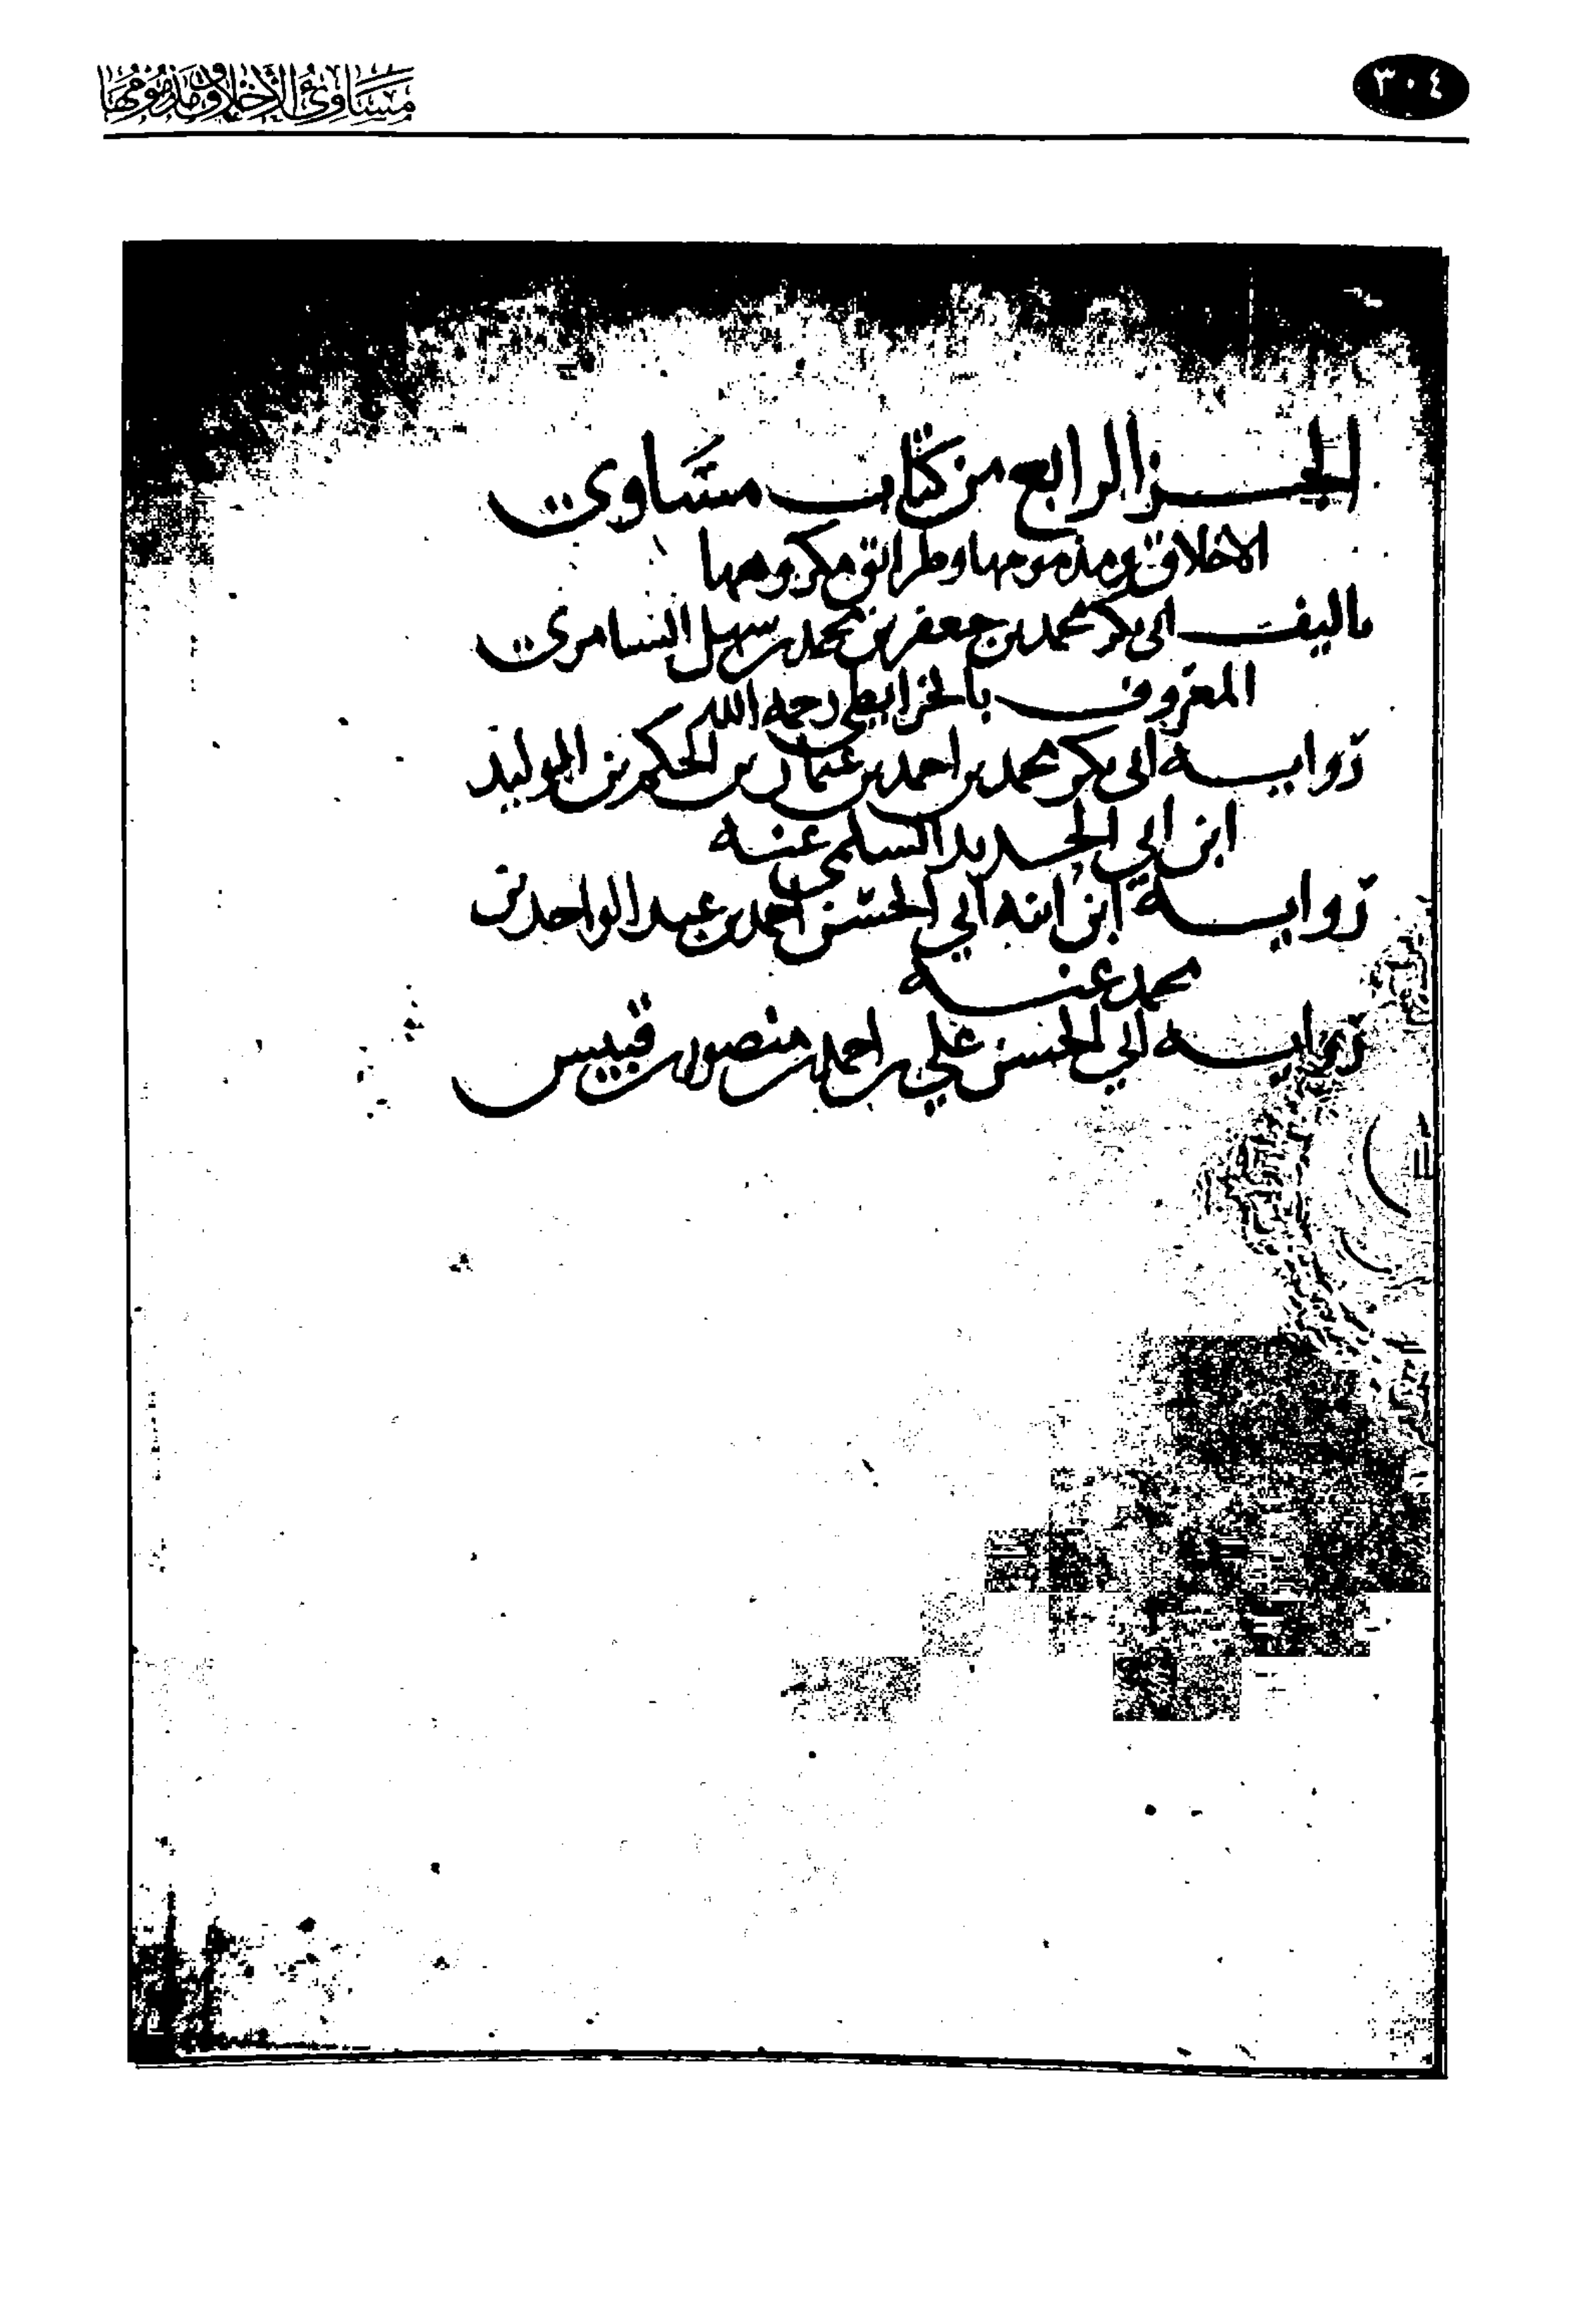 ٣٠٤
مساوئ الأخلاق ومذمومها
الجزا الرابع من كتاب مساوى
الاخلاق ومذمومها وطرائق مكروهها
تاليف ابى بكر محمد بن جعفر بن محمد بن سهل السامرى
المعروف بالخرايطي رحمه الله
رواية ابى بكر محمد بن احمد بن عثمان بن الحكم بن الوليد
ابن ابي الحديد السلمي عنه
رواية ابن ابنه ابي الحسن احمد بن عبد الواحد بن
محمد عنه
رواية ابي الحسن علي بن احمد بن منصور بن قبيس